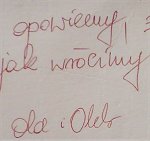 opowiemy,
jak wrócimy
Ola i Olek